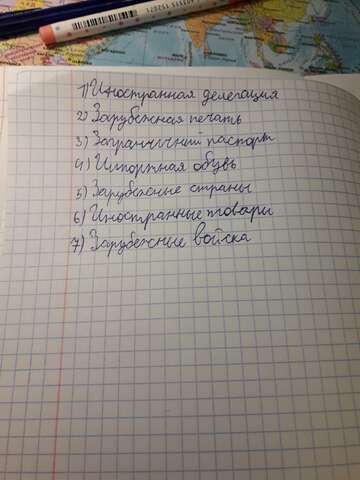 1) Иностранная делегация
2) Зарубежная печать
3) Заграничний паспорт
4) Импортная обувь
5) Зарубежные страны
6) Иностранные товари
7) Зарубежные войска